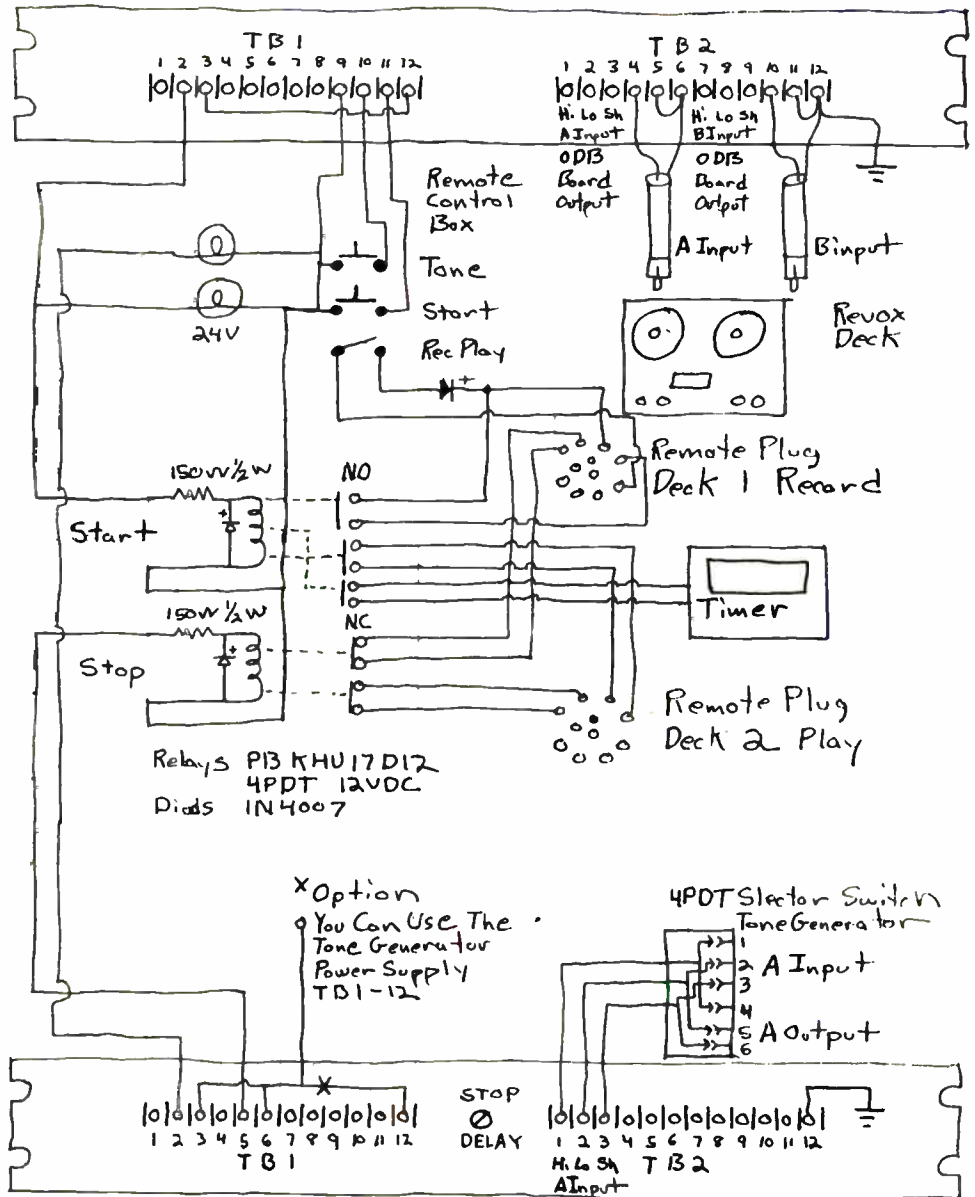 TB1
1 2 3 4 5 6 7 8 9 10 11 12
TB2
1 2 3 4 5 6 7 8 9 10 11 12
Hi Lo Sh
A Input
ODB
Board
Output
Hi Lo Sh
B Input
ODB
Board
Output
A Input
B input
Remote
Control
Box
Tone
Start
Rec Play
24V
+
Revox
Deck
Remote Plug
Deck 1 Record
150W ½W
NO
+
Start
Timer
NC
150W ½W
+
Stop
Remote Plug
Deck 2 Play
Relays P13 KHU17D12
4PDT 12VDC
Diods 1N4007
x Option
You Can Use The
Tone Generator
Power Supply
TB1-12
4PDT Slector Switch
Tone Generator
1
2 A Input
3
4
5 A Output
6
X
1 2 3 4 5 6 7 8 9 10 11 12
TB1
STOP
DELAY
1 2 3 4 5 6 7 8 9 10 11 12
Hi Lo Sh TB2
A Input